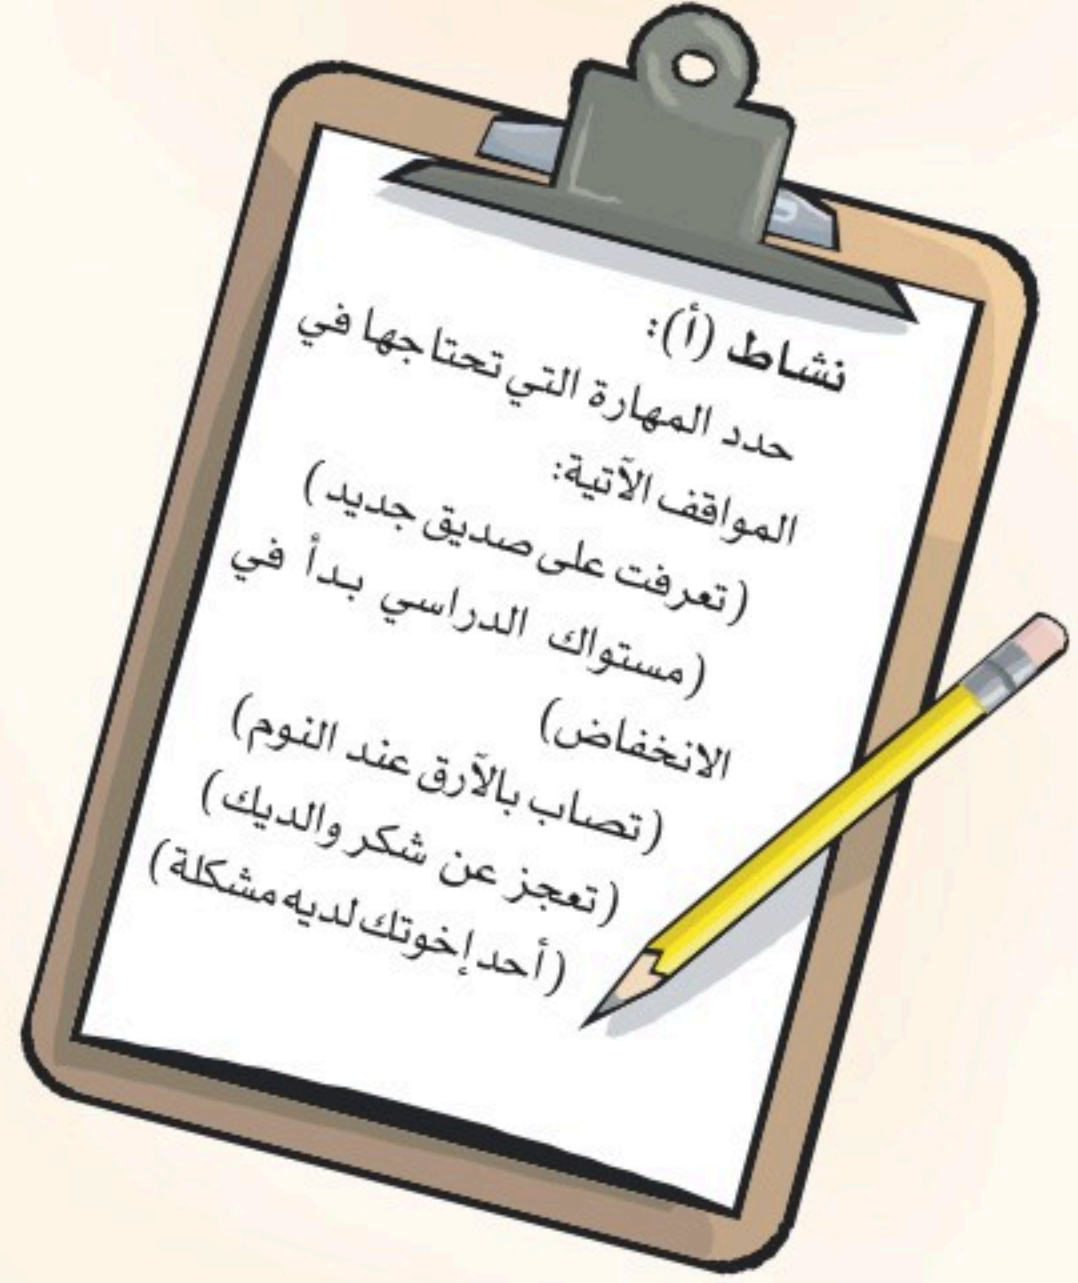 نشاط (أ):
حدد المهارة التي تحتاجها في
المواقف الآتية:
(تعرفت على صديق جديد)
(مستواك الدراسي بدأ في
الانخفاض)
(تصاب بالآرق عند النوم)
(تعجز عن شكر والديك)
(أحد إخوتك لديه مشكلة)